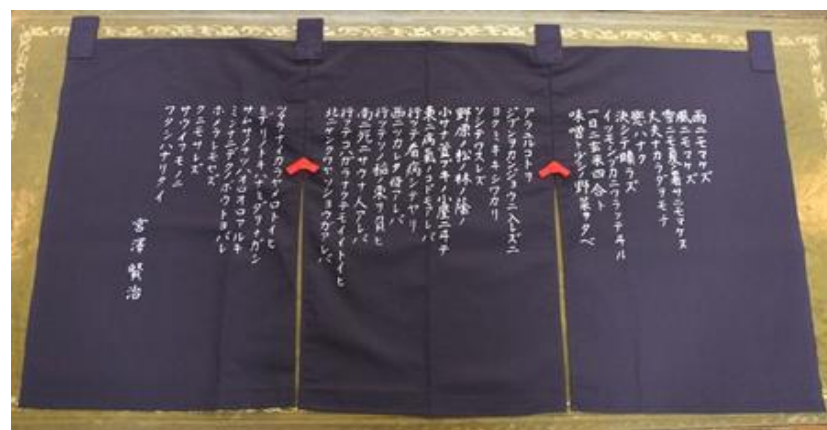 雨ニモマケズ
風ニモマケズ
雪ニモ夏ノ暑サニモマケヌ
丈夫ナカラダヲモチ
慾ハナク
決シテ瞋ラズ
イツモシヅカニワラッテヰル
一日ニ玄米四合ト
味噌ト少シノ野菜ヲタベ
アラユルコトヲ
ジブンヲカンジョウニ入レズニ
ヨクミキキシワカリ
ソシテワスレズ
野原ノ松ノ林ノ陰ノ
小サナ萱ブキノ小屋ニヰテ
東ニ病氣ノコドモアレバ
行ッテ看病シテヤリ
西ニツカレタ母アレバ
行ッテソノ稲ノ束ヲ負ヒ
南ニ死ニサウナ人アレバ
行ッテコハガラナクテモイイトイヒ
北ニケンクヮヤソショウガアレバ
ツマラナイカラヤメロトイヒ
ヒデリノトキハナミダヲナガシ
サムサノナツハオロオロアルキ
ミンナニデクノボウトヨバレ
ホメラレモセズ
クニモサレズ
サウイフモノニ
ワタシハナリタイ
宮澤賢治